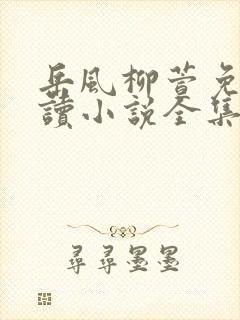 岳風柳萱免
讀小説全集
尋尋墨墨